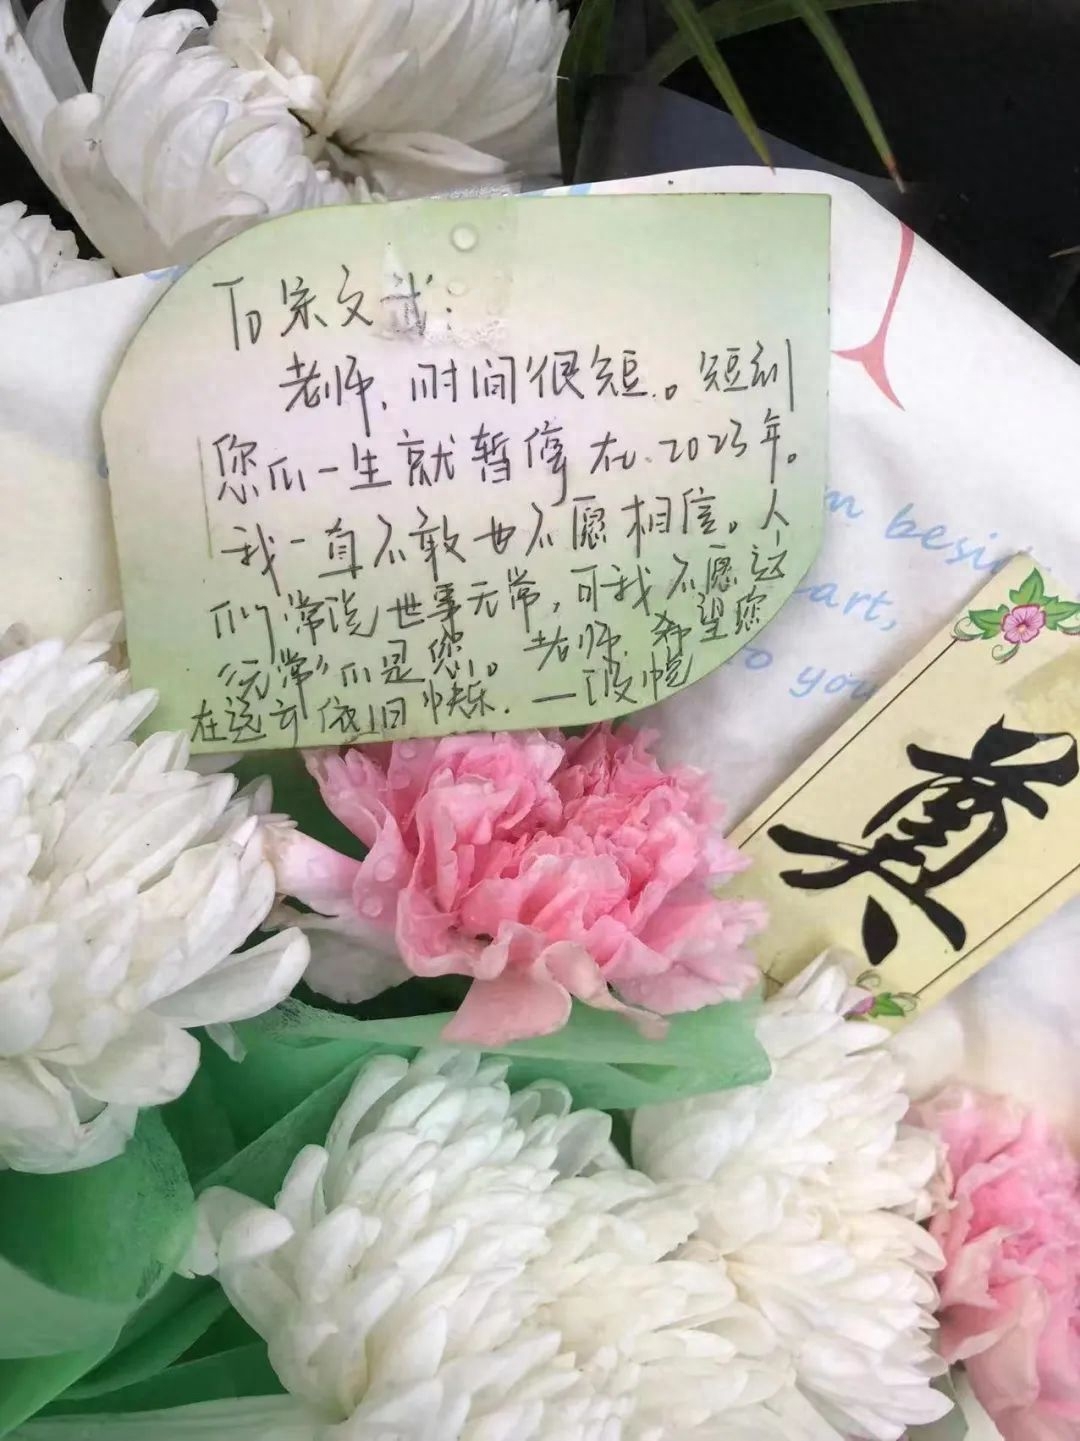 To 宋文武:
老师，时间很短。短到
您的一生就暂停在2023年。
我一直不敢也不愿相信。人
们常说世事无常，可我不愿这
“无常”的是您。老师，希望您
在远方依旧快乐.
m besi
art,
to you
奠